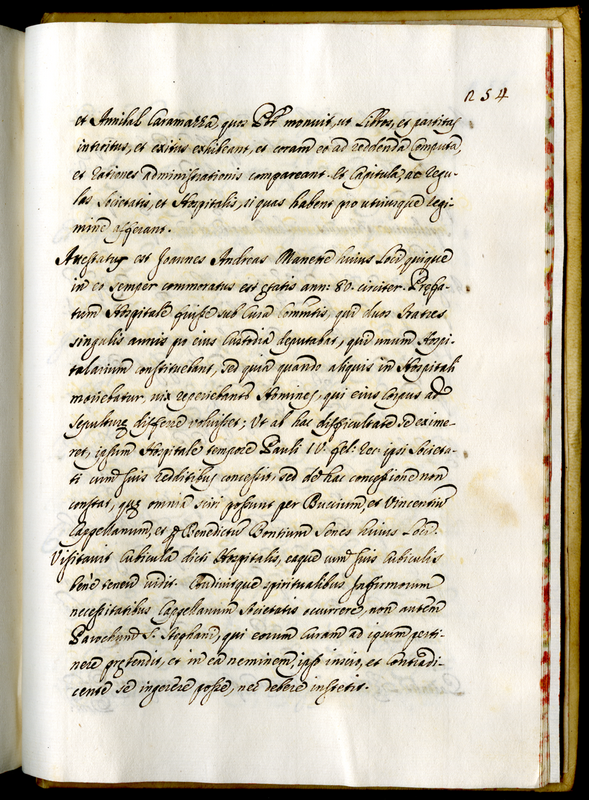 254
et Annibal Caramazza, quos Pbr̃ monuit, ut Libros, et partitas
introitus, et exitus exhibeant, et coram eo ad reddenda computa,
et rationes administrationis compareant. Et Capitula, ac regu-
las Societatis, et Hospitalis, si quas habent pro utriusque regi-
mine afferant.
Attestatus est Joannes Andreas Manente huius Loci, quique
in eo semper commoratus est ętatis ann: 80. circiter. Prefa-
tum Hospitale fuisse sub Cura Com̃tis, que duos Fratres
singulis annis pro eius Custodia deputabat, qui unum Hospi-
talarium constituebant, sed quia quando aliquis in Hospitali
moriebatur, vix reperiebant Homines, qui eius Corpus ad
sepulturę differre voluisset; Ut ab hac difficultate se exime-
ret, ipsum Hospitale tempore Pauli IV. fel: rec: ipsi Societa-
ti cum suis redditibus concessit, sed de hac concessione non
constat, quę omnia sciri possunt per Bucium, et Vincentiũ
Cappellanum, et Benedictũ Bontium Senes huius Loci.
Visitavit cubicula dicti Hospitalis, eaque cum suis cubiculis
bene teneri vidit. Audivitque spiritualibus Infirmorum
necessitatibus Cappellanum Societatis occurrere, non autem
Parochum S. Stephani, qui eorum curam ad ipsum perti-
nere prętendit, et in ea neminem, ipso inscio, et contradi-
cente se ingerere posse, nec debere institit.